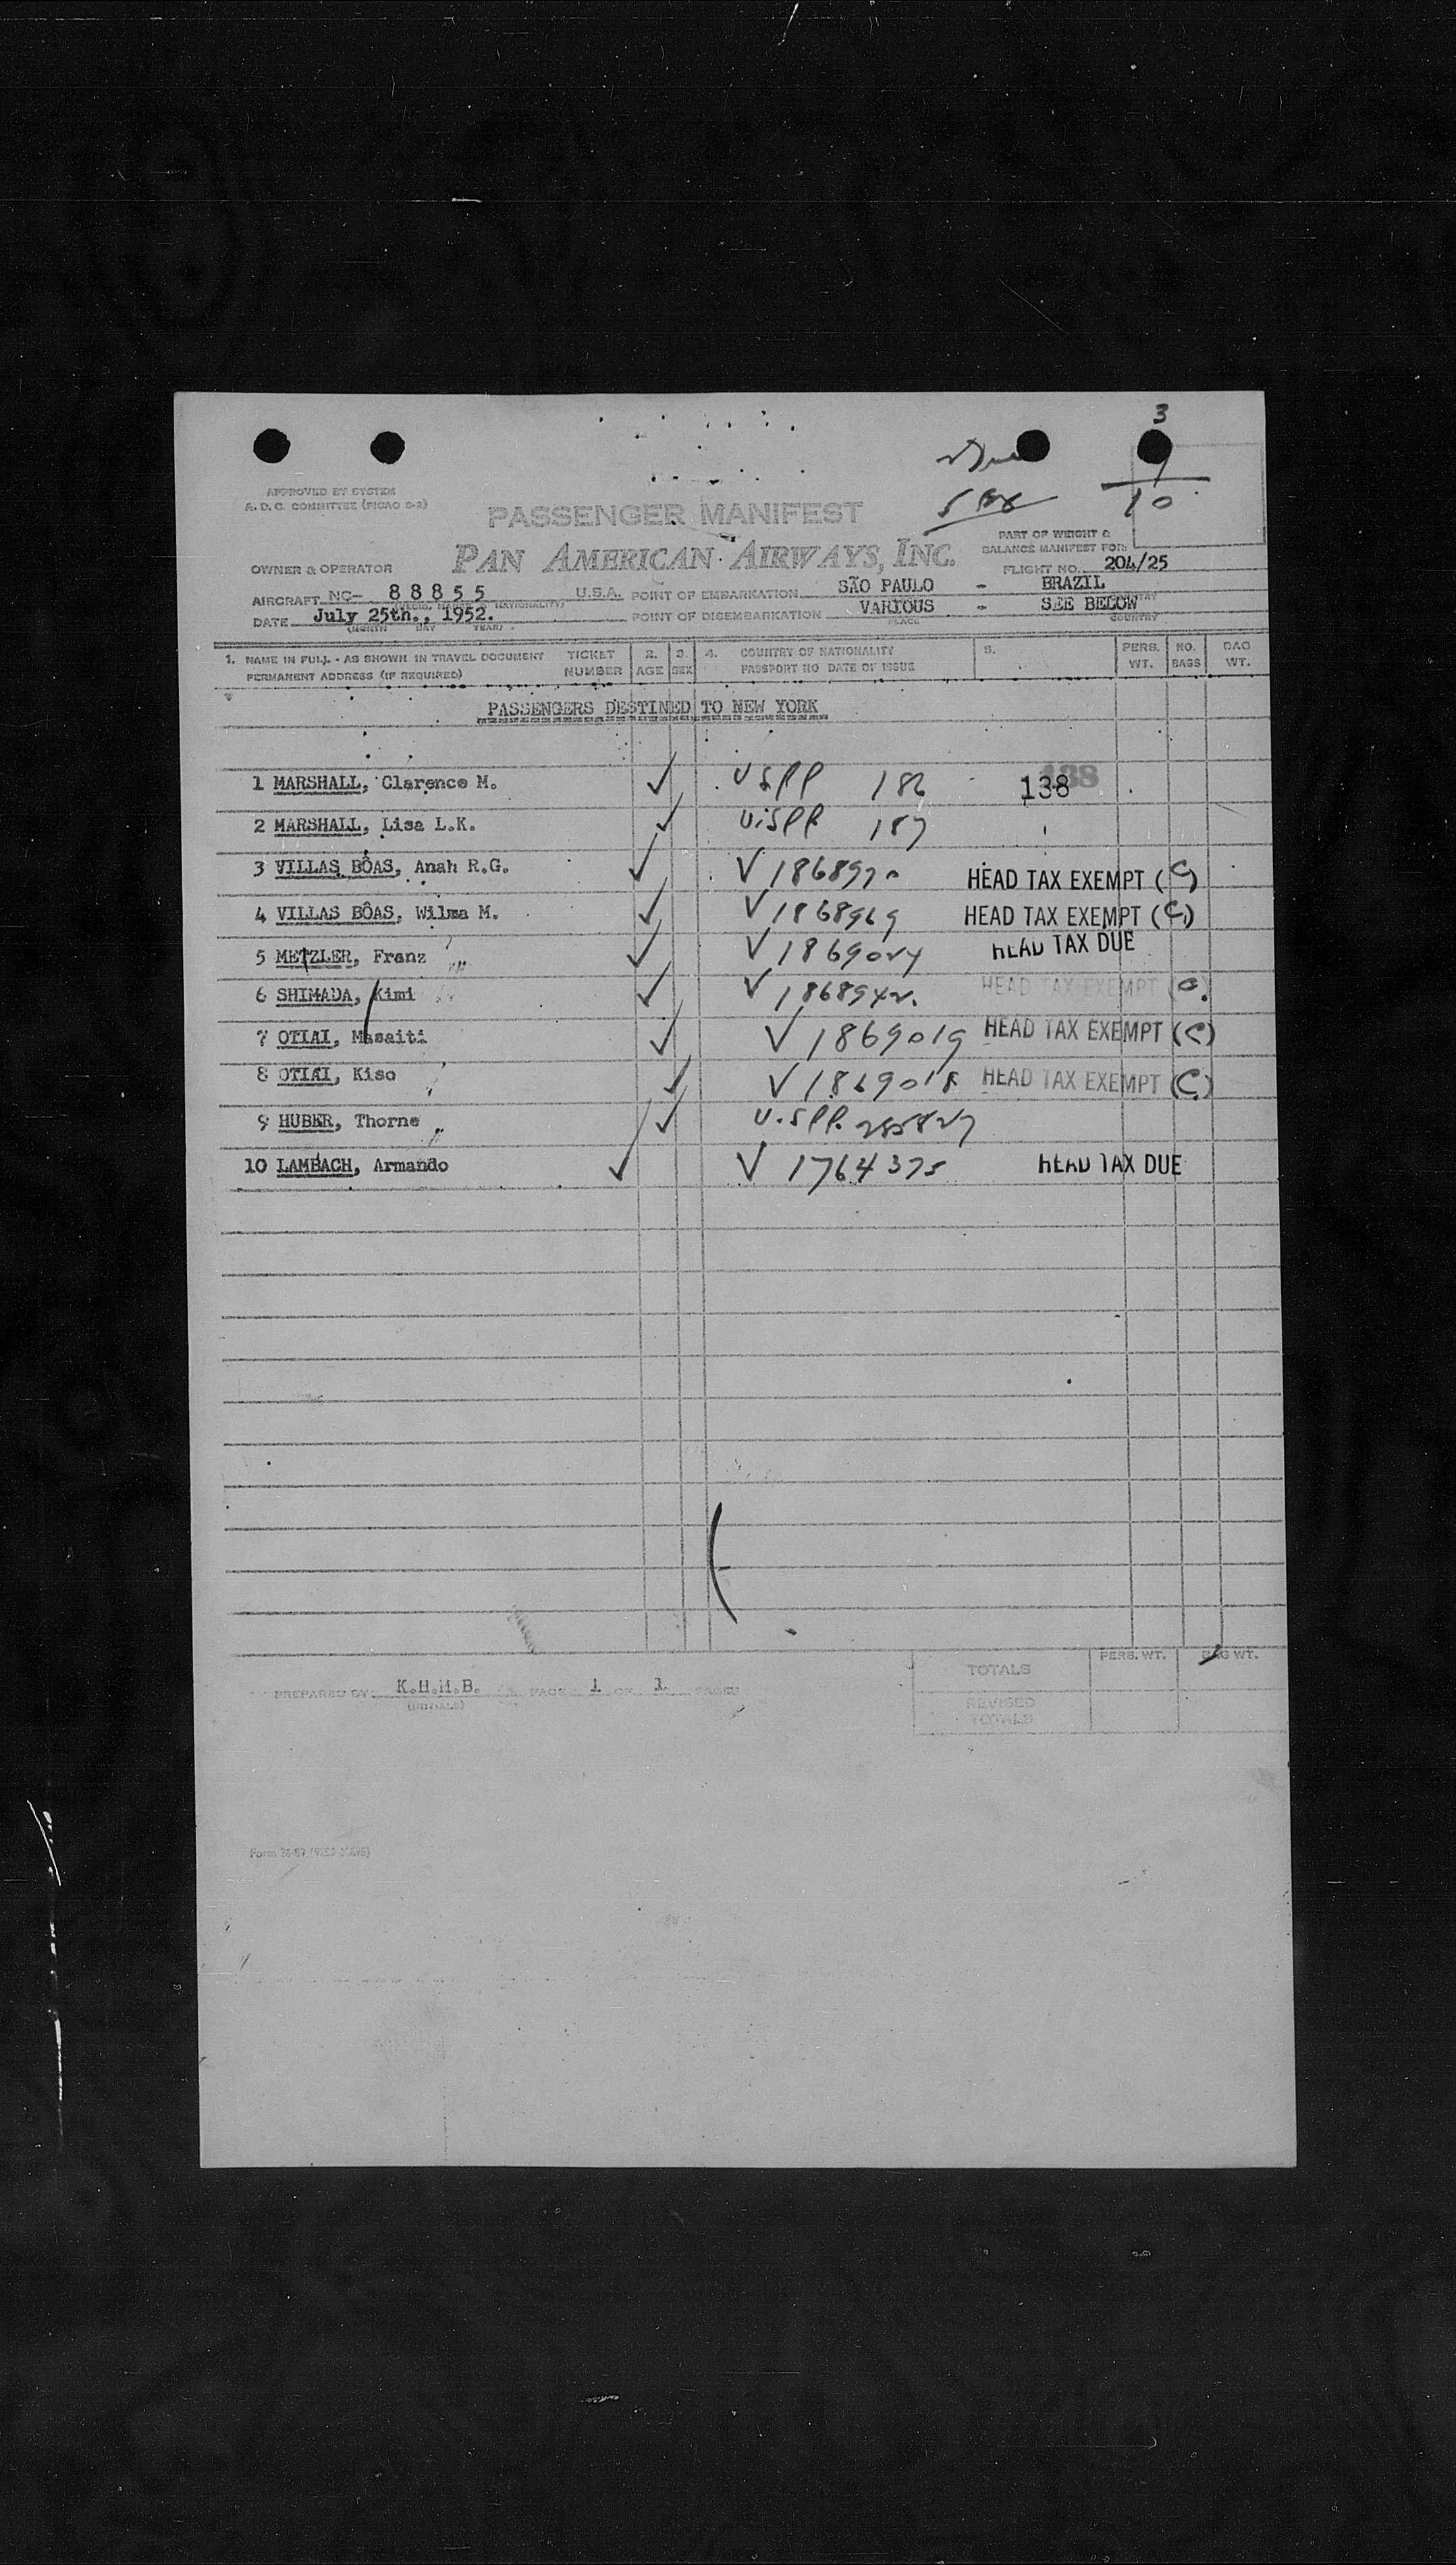 3
APPROVED BY SYSTEM
A. D. C. COMMITTEE (PICAO 8-2)
PASSENGER MANIFEST
10
PART OF WEIGHT &
BALANCE MANIFEST FOR:
OWNER & OPERATOR PAN AMERICAN AIRWAYS, INC. FLIGHT NO. 204/25
AIRCRAFT NC- 88855 U.S.A. POINT OF EMBARKATION SÃO PAULO - BRAZIL
DATE July 25th., 1952. POINT OF DISEMBARKATION VARIOUS - SEE BELOW
(MONTH DAY YEAR) PLACE COUNTRY
1. NAME IN FULL - AS SHOWN IN TRAVEL DOCUMENT TICKET 2. 3. 4. COUNTRY OF NATIONALITY 5. PERS. NO. BAG
PERMANENT ADDRESS (IF REQUIRED) NUMBER AGE SEX PASSPORT NO DATE OF ISSUE WT. BAGS WT.
PASSENGERS DESTINED TO NEW YORK
1 MARSHALL, Clarence M. ✓ USPP 186 138 138
2 MARSHALL, Lisa L.K. ✓ U.SPP. 187
3 VILLAS BÔAS, Anah R.G. ✓ V 1868970 HEAD TAX EXEMPT (C)
4 VILLAS BÔAS, Wilma M. ✓ V 1868969 HEAD TAX EXEMPT (C)
5 METZLER, Franz ✓ V 1869024 HEAD TAX DUE
6 SHIMADA, Kimi ✓ V 1868942. HEAD TAX EXEMPT (C)
7 OTIAI, Masaiti ✓ V 1869019 HEAD TAX EXEMPT (C)
8 OTIAI, Kiso ✓ V 1869018 HEAD TAX EXEMPT (C)
9 HUBER, Thorne ✓ U.SPP. 285827
10 LAMBACH, Armando ✓ V 1764375 HEAD TAX DUE
PERS. WT. BAG WT.
TOTALS
PREPARED BY: K.H.M.B. PAGE 1 OF 1 PAGES
(INITIALS)
REVISED
TOTALS